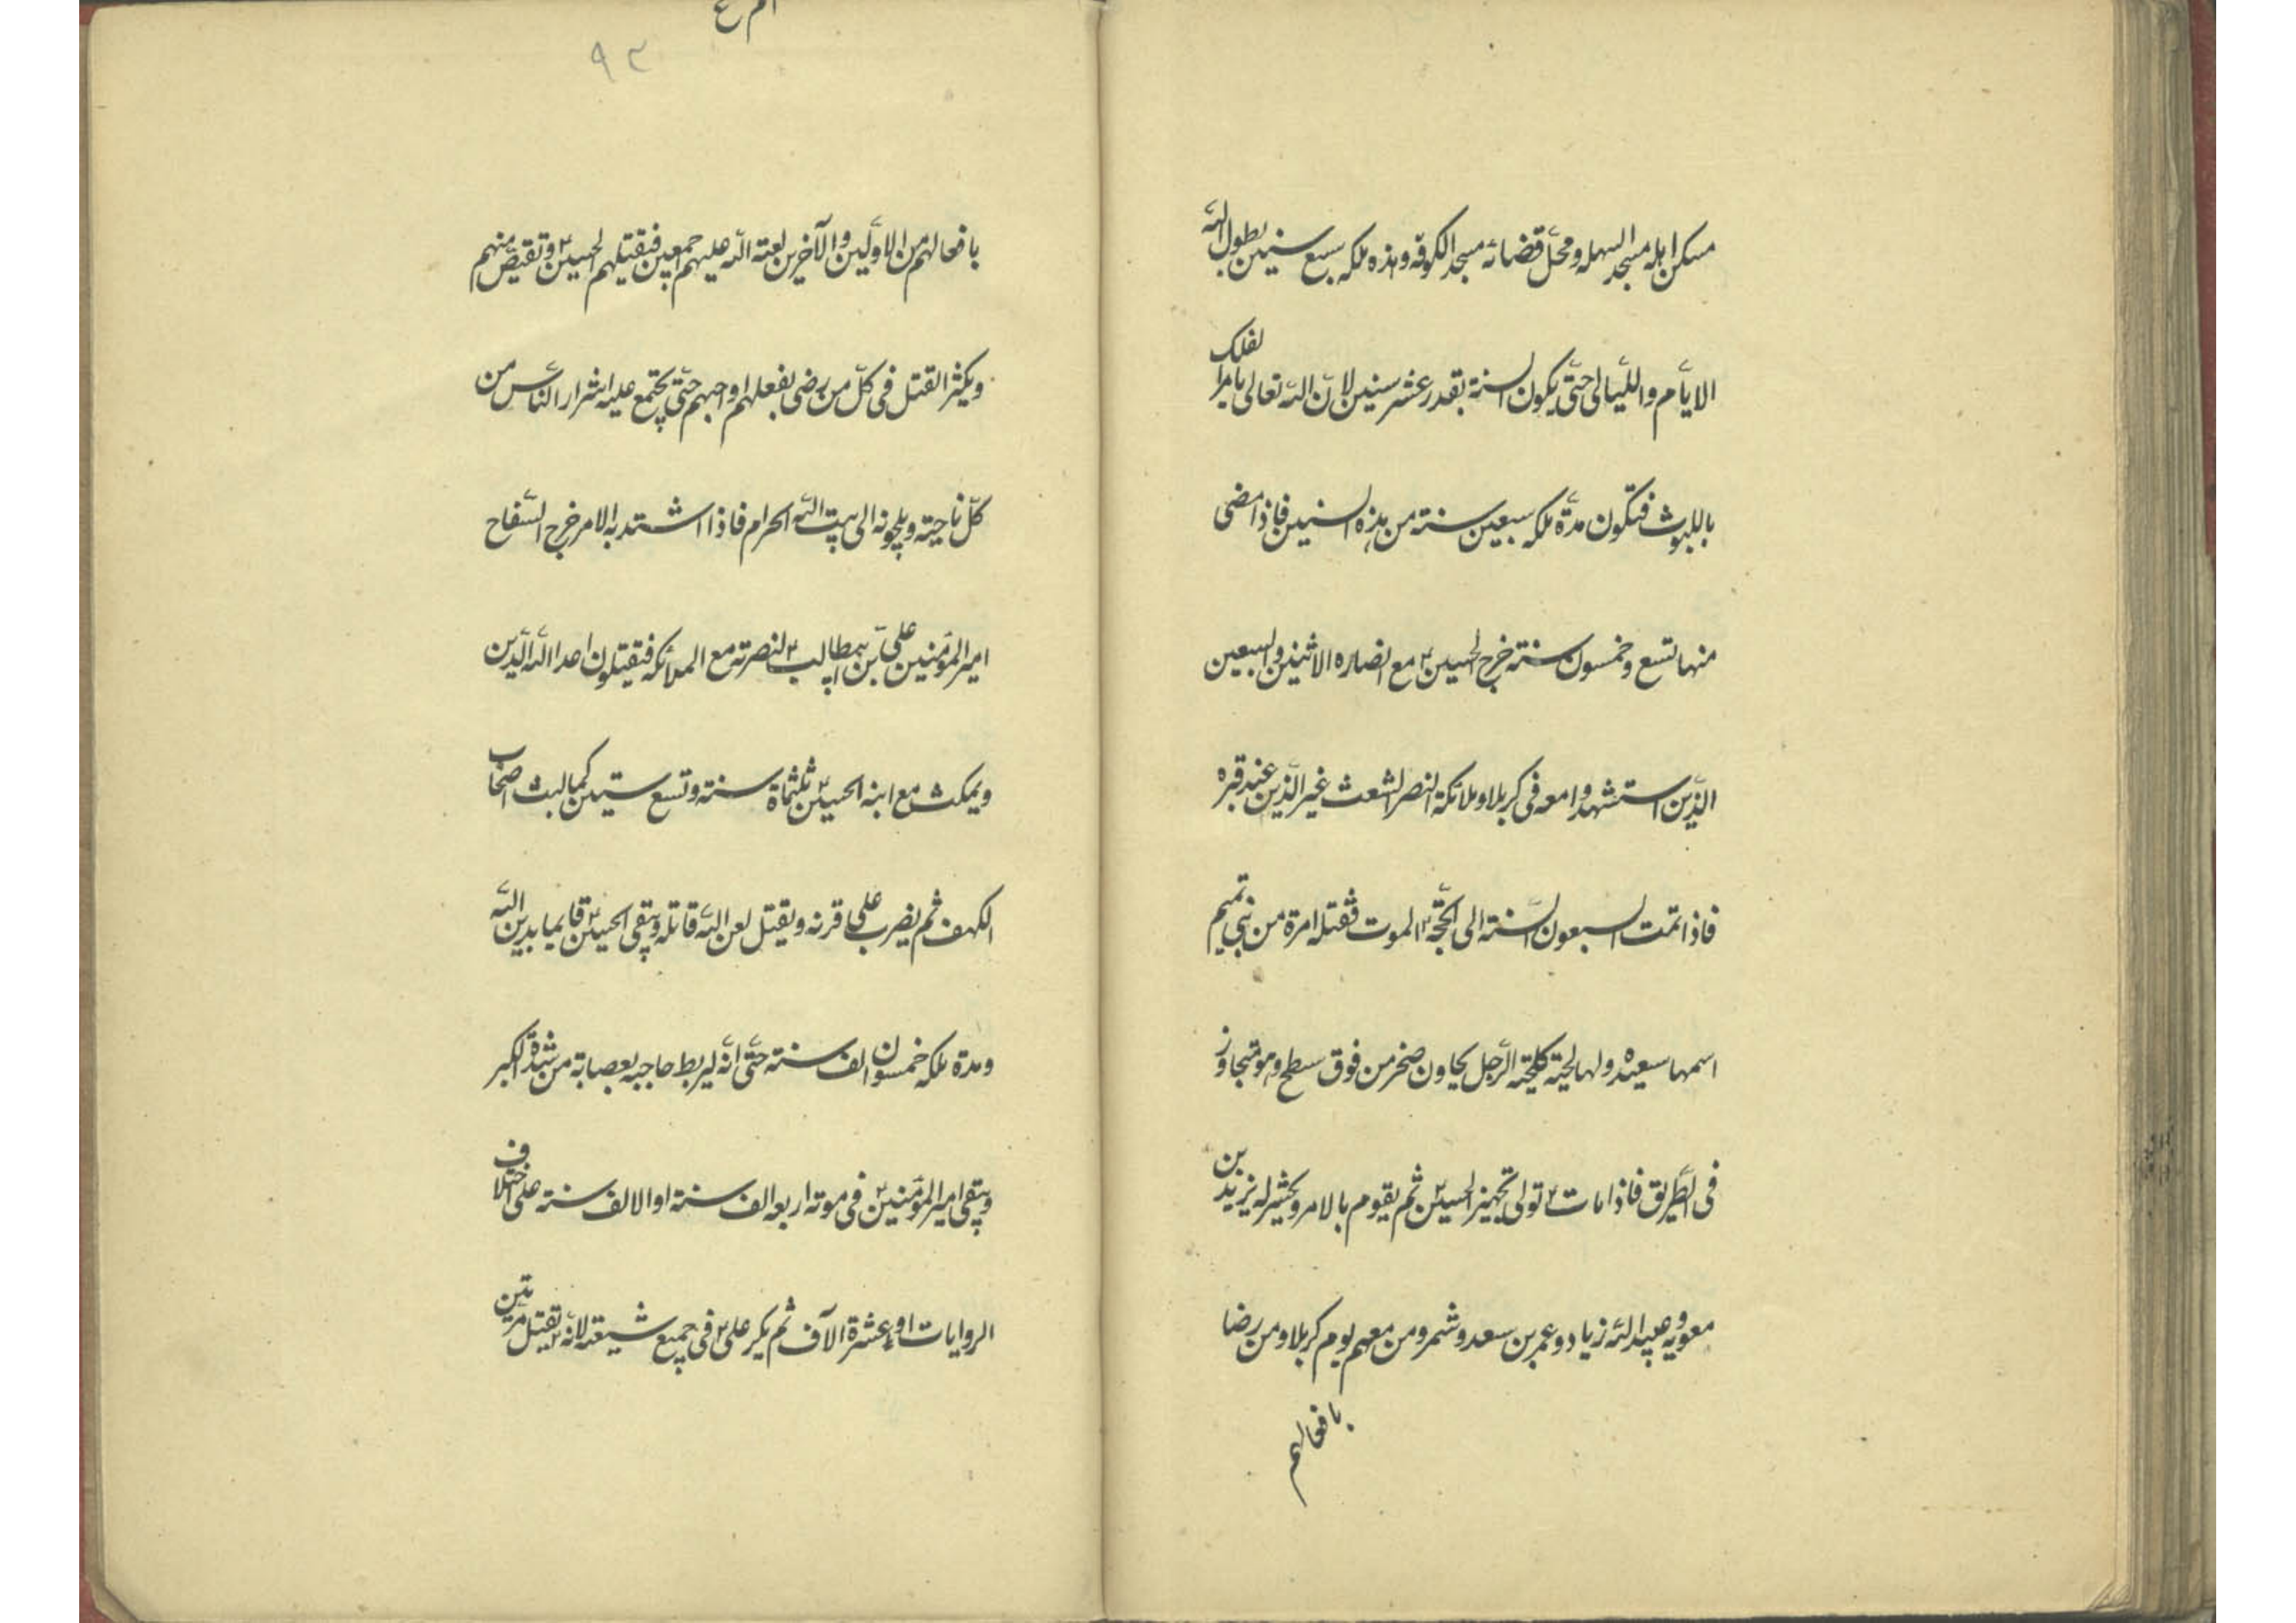 مسكن اهله مسجد السهله ومحلّ قضائه مسجد الكوفه وهذه ملكه سبع سنين يطول اللّه
الايّام واللّيالى حتّى يكون السنة بقدر عشر سنين لانّ اللّه تعالى يامر الفلك
باللبوث فتكون مدّة ملكه سبعين سنته من هذه السنين فاذا مضى
منها تسع وخمسون سنته خرج الحسين ع مع انصاره الاثنين والسبعين
الذّين استشهدوا معه فى كربلا وملائكة النصر الشعث غير الذّين عند قبره
فاذا تمت السبعون السّنته الى الحجّة ع الموت فتقتله امرة من بنى تميم
اسمها سعيده ولها لحيته كلحيته الرّجل بجاون صخر من فوق سطح وهو متجاوز
فى الطّريق فاذا مات ع تولى تجهيز الحسين ع ثم يقوم بالامر ويحشر له يزيد بن
معويه وعبيد اللّه زياد وعمر بن سعد وشمر ومن معهم يوم كربلا ومن رضا
بافعالهم
٩٣
بافعالهم من الاوّلين والآخرين لعنته اللّه عليهم جمعين فيقتلهم الحسين ع وتقتصّ منهم
ويكثر القتل فى كلّ من رضى بفعلهم او احبهم حتّى يجتمع عليه اشرار النّاس من
كلّ ناحيته ويلجونه الى بيت اللّه الحرام فاذا اشتد به الامر خرج السّفاح
امير المؤمنين علىّ بن ابيطالب ع لنصرته مع الملائكه فيقتلون اعدا اللّه الذّين
ويمكث مع ابنه الحسين ع ثلثماة سنته وتسع سنين كما لبث اصحاب
الكهف ثم يضرب على قرنه ويقتل لعن اللّه قاتله ويبقى الحسين ع قايما بدين اللّه
ومدة ملكه خمسون الف سنته حتّى انّه ليربط حاجبه بعصابة من شدة الكبر
ويبقى امير المؤمنين ع فى موته اربعه الف سنته او الالف سنته على اختلاف
الروايات او عشرة الآف ثم يكر على ع فى جميع شيعته لانّه ع يقتل مرّتين